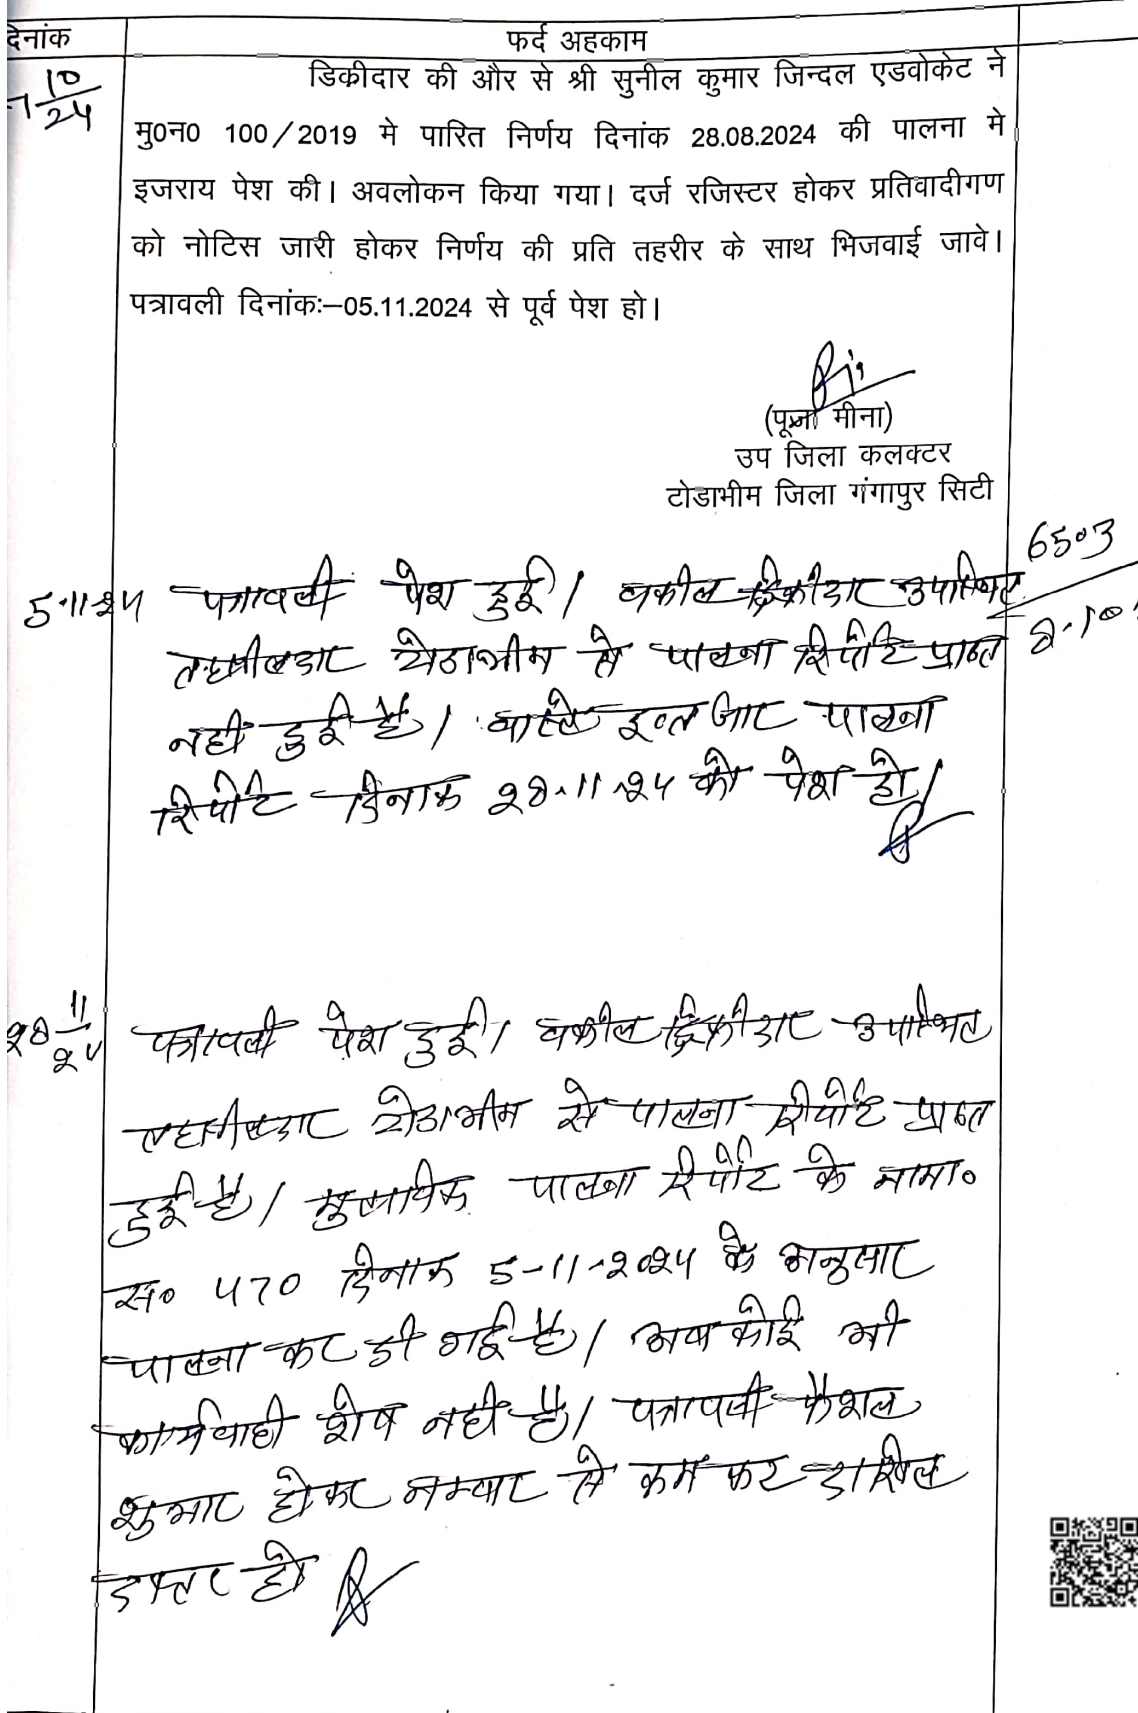 दिनांक
फर्द अहकाम
10
24
डिकीदार की और से श्री सुनील कुमार जिन्दल एडवोकेट ने
मु0न0 100/2019 मे पारित निर्णय दिनांक 28.08.2024 की पालना मे
इजराय पेश की। अवलोकन किया गया। दर्ज रजिस्टर होकर प्रतिवादीगण
को नोटिस जारी होकर निर्णय की प्रति तहरीर के साथ भिजवाई जावे।
पत्रावली दिनांकः–05.11.2024 से पूर्व पेश हो।
(पूजा मीना)
उप जिला कलक्टर
टोडाभीम जिला गंगापुर सिटी
6503
5.11.24 पत्रावली पेश हुई। वकील डिक्रीदार उपस्थित
तहसीलदार टोडाभीम से पालना रिपोर्ट प्राप्त
नहीं हुई है। वास्ते इन्तजार पालना
रिपोर्ट दिनांक 28.11.24 को पेश हो।
28 11
24 पत्रावली पेश हुई। वकील डिक्रीदार उपस्थित
तहसीलदार टोडाभीम से पालना रिपोर्ट प्राप्त
हुई है। मुताबिक पालना रिपोर्ट के नामा०
स० 470 दिनांक 5-11-2024 के अनुसार
पालना कर दी गई है। अब कोई भी
कार्यवाही शेष नहीं है। पत्रावली फैशल
शुमार होकर नम्बर से कम कर दाखिल
दफ्तर हो